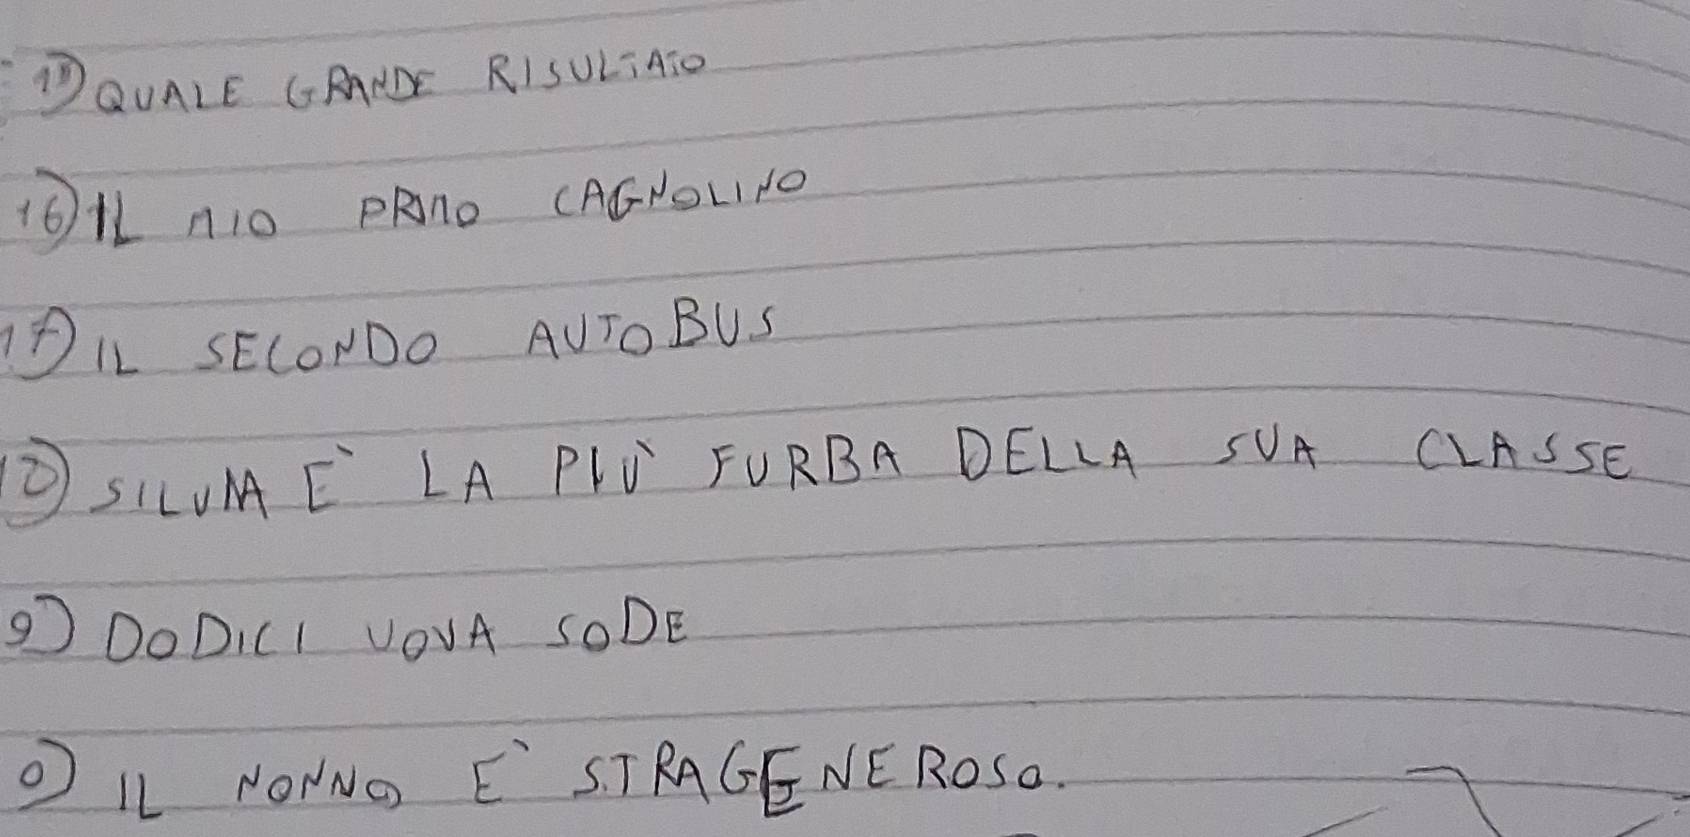 15) QUALE GRANDE RISULTATO
16) IL MIO PRIMO CAGNOLINO
17) IL SECONDO AUTOBUS
18) SILVIA È LA PIÙ FURBA DELLA SUA CLASSE
9) DODICI UOVA SODE
0) IL NONNO E' STRAGENEROSO.